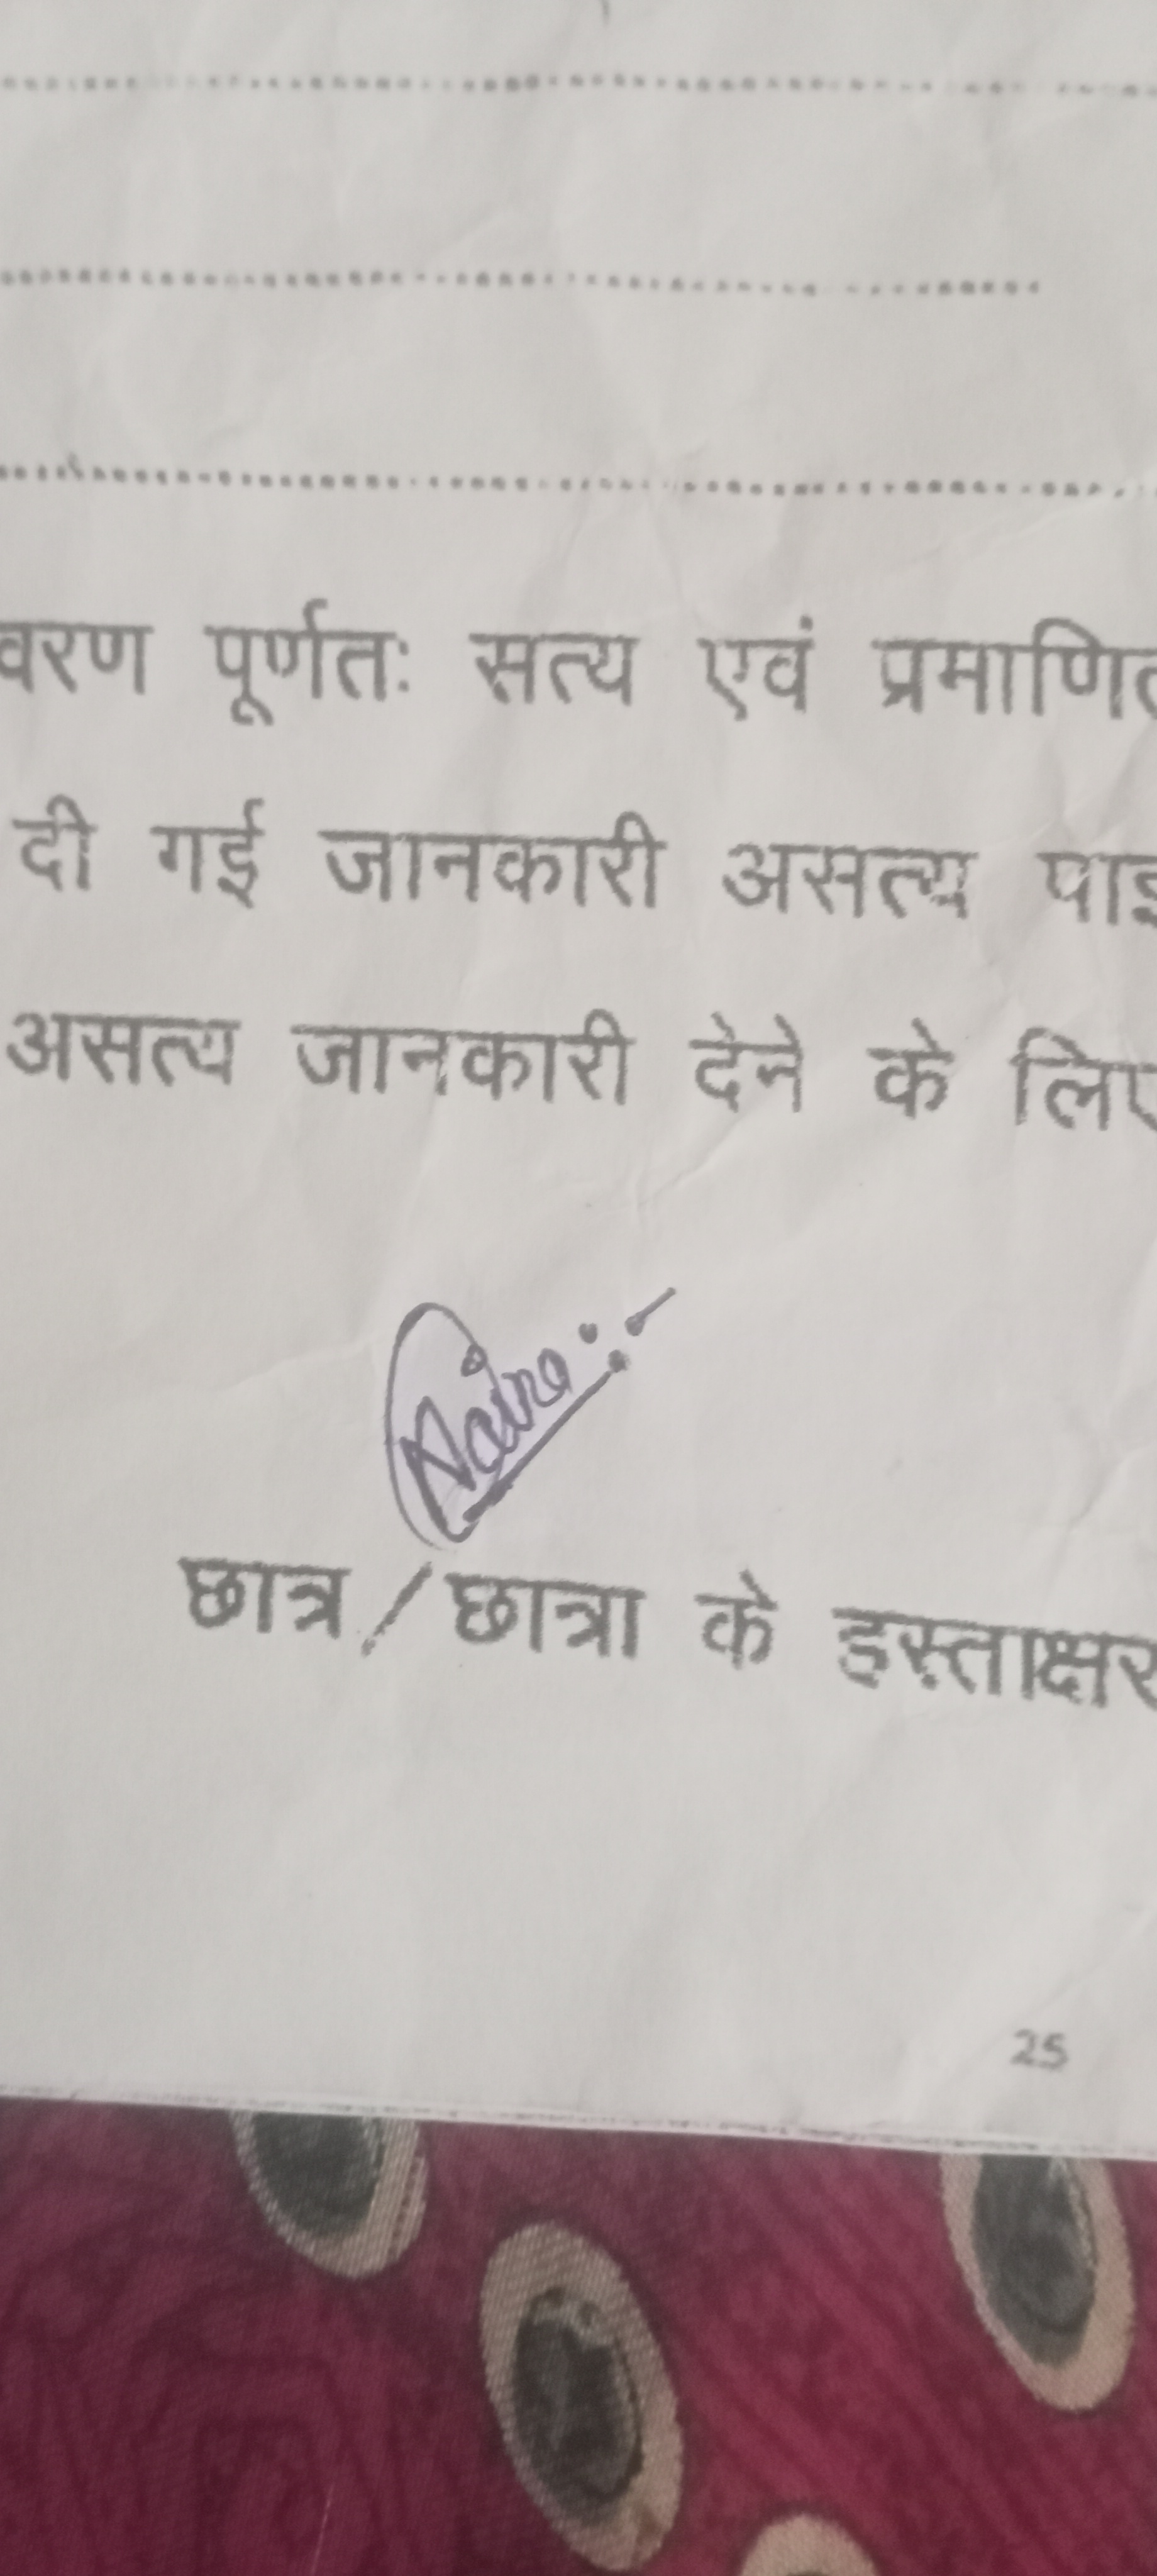 वरण पूर्णतः सत्य एवं प्रमाणित
दी गई जानकारी असत्य पाइ
असत्य जानकारी देने के लिए
छात्र/छात्रा के हस्ताक्षर
25